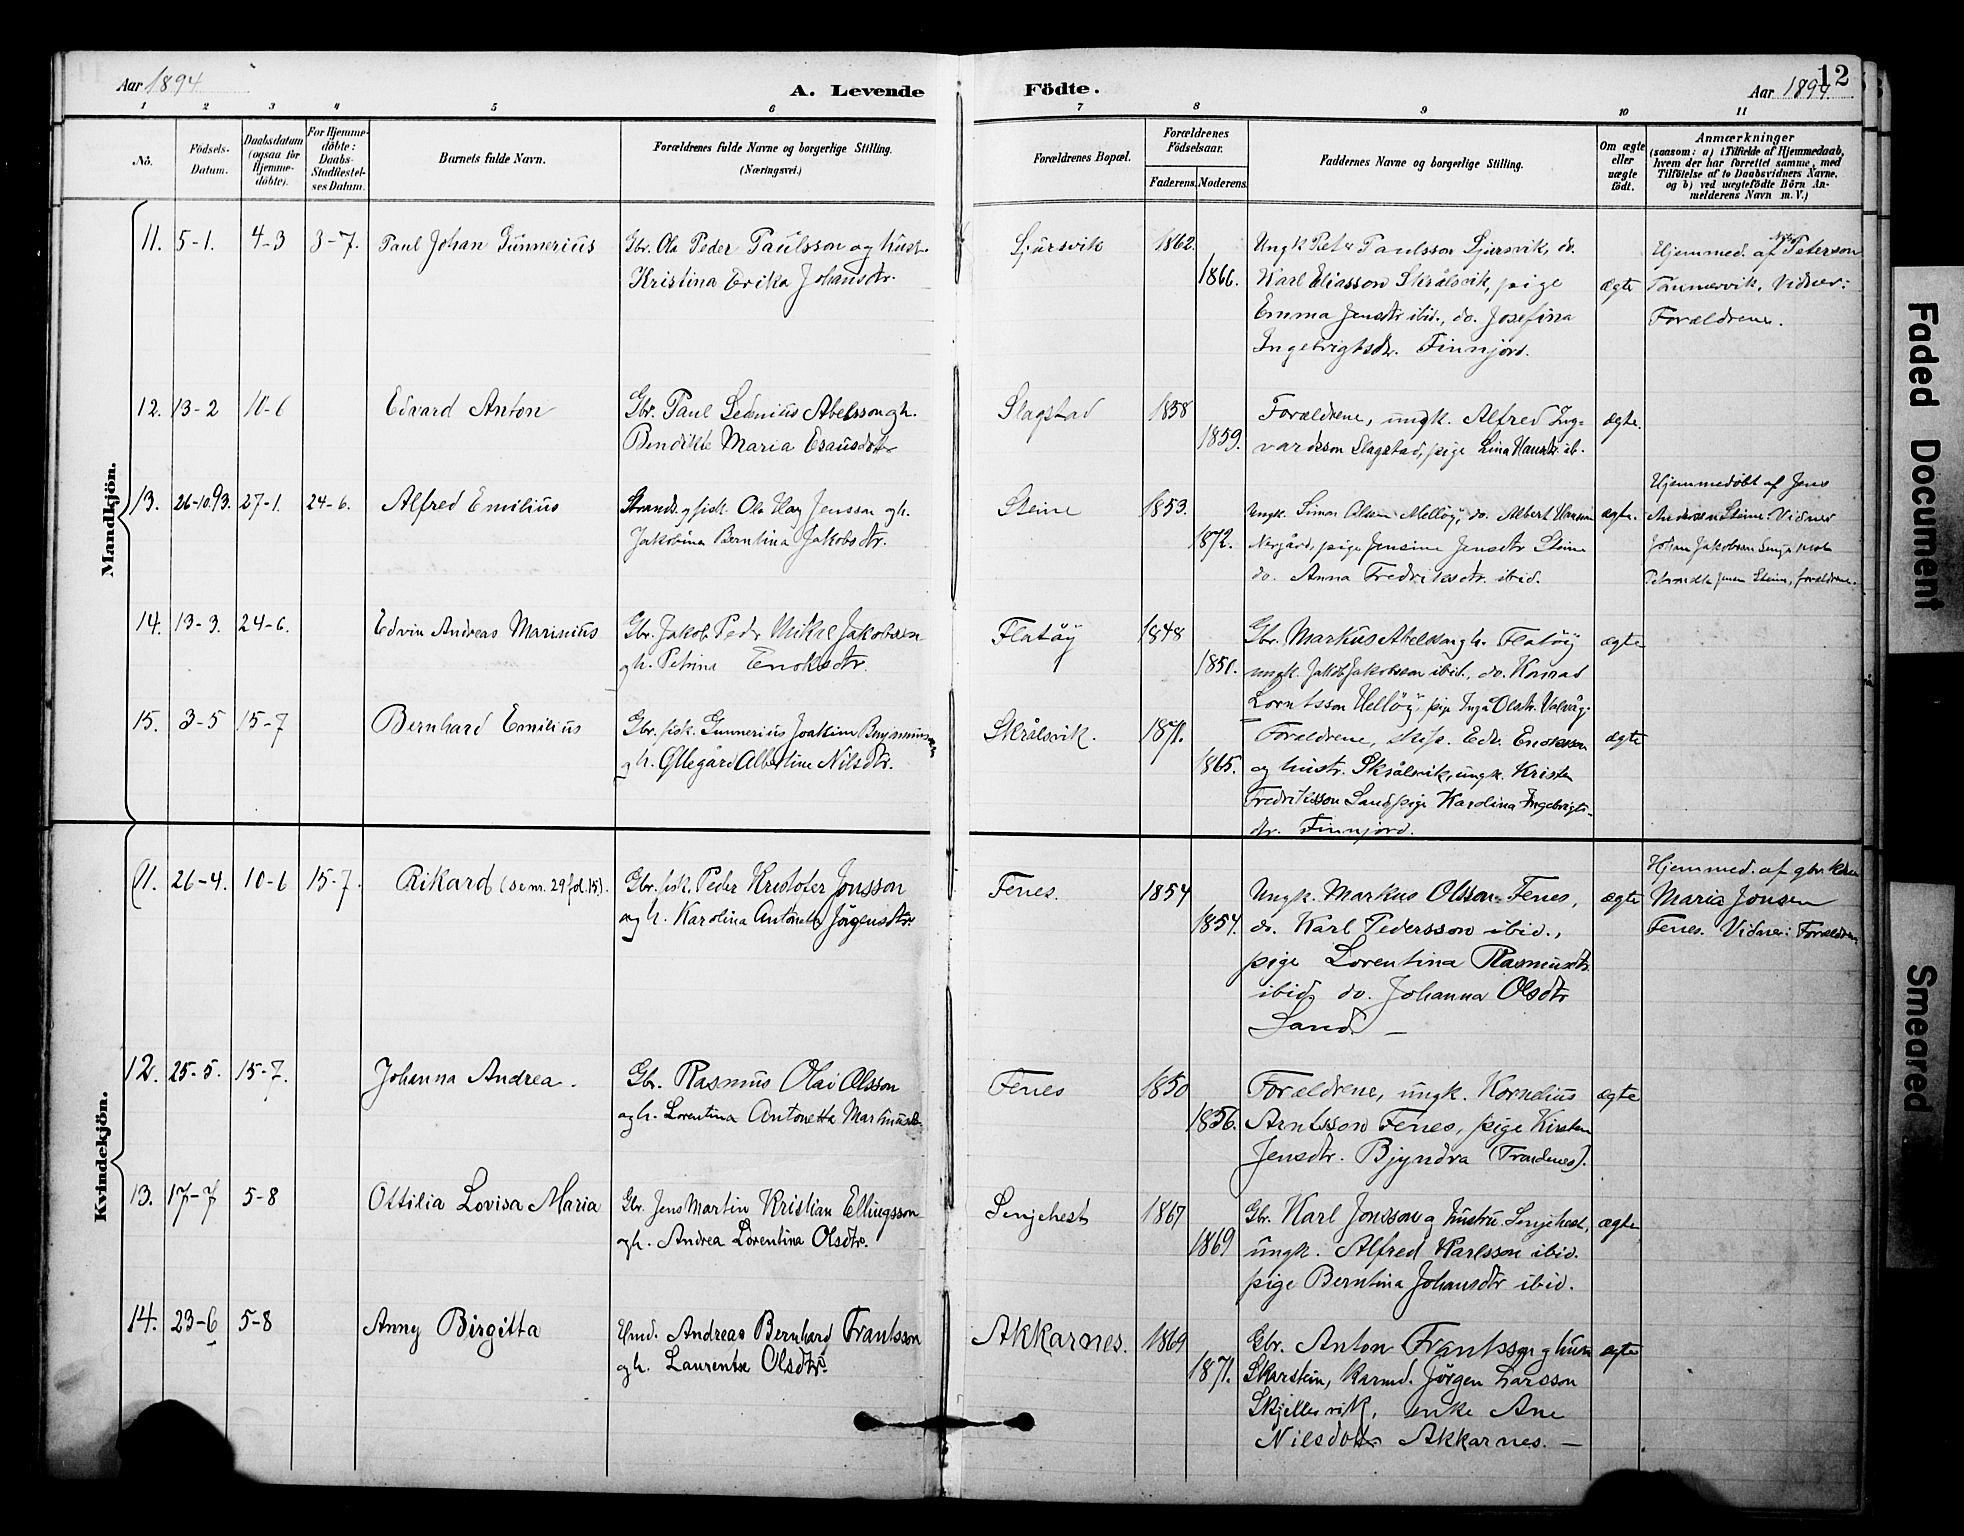 Aar 1894
A. Levende
1 2 3 4 5 6
No.
Födsels-Datum.
Daabsdatum (ogsaa for Hjemme-döbte).
For Hjemme-döbte: Daabs-Stadfæstel-ses Datum.
Barnets fulde Navn.
Forældrenes fulde Navne og borgerlige Stilling.
(Næringsvei.)
Mandkjön.
11. 5-1. 4-3 3-7. Paul Johan Gunnerius Gbr. Ola Peder Paulsson og hust.
Kristina Erika Johansdtr.
12. 13-2 10-6 Edvard Anton Gbr. Paul Abelsson gh.
Bendikte Maria Esausdatr
13. 26-10 93. 27-1. 24-6. Alfred Emilius Strands. g fisk. Ola Hag Jensson gh.
Jakobina Berntina Jakobsdtr.
14. 13-3. 24-6. Edvin Andreas Marinius Gbr. Jakob Peder Mikal Jakobsson
gh. Petrina Enoksdtr.
15. 3-5 15-7 Bernhard Emilius Gbr. fisk. Gunnerius Joakim
gh. Albertine Nilsdtr.
Kvindekjön.
11. 26-4. 10-6 15-7. Rikard (se nr. 29 fol. 15). Gbr. fisk. Peder Kristofer Jonsson
og h. Karolina Antonetta Jörgensdtr.
12. 25-5. 15-7. Johanna Andrea. Gbr. Rasmus Olai Olsson
og h. Lorentina Antonetta
13. 17-7 5-8 Ottilia Lovisa Maria Gbr. Jens Martin Kristian Ellingsson
gh. Andrea Lorentina Olsdtr.
14. 23-6 5-8 Anny Birgitta Hmd. Andreas Bernhard Frantsson
gh. Laurentse Olsdtr.
Födte.
12
Aar 1894.
7 8 9 10 11
Forældrenes Bopæl.
Forældrenes Födselsaar.
Faderens. Moderens.
Faddernes Navne og borgerlige Stilling.
Om ægte eller uægte födt.
Anmærkninger
(saasom: a) i Tilfælde af Hjemmedaab,
hvem der har forrettet samme, med
Tilföielse af to Daabsvidners Navne,
og b) ved uægtefödte Börn An-
melderens Navn m. V.)
Sjursvik 1862. Ungk. Peter Paulsson Sjursvik, do. Hjemmed. af Peterson
1866. Karl Eliasson Skrålsvik, pige ægte Tennervik, Vidner:
Emma Jensdtr ibid., do. Josefina Forældrene.
Ingebrigtsdtr. Finnjord.
Slagstad 1858 Forældrene, ungk. Alfred Ing- ægte.
1859. vardsson Slagstad, pige Lina Hansdtr. ib.
Steine 1853. Ungk. Simon Olsen Melløy, do. Albert Hansen ægte. Hjemmedöbt af Jens
1872. Nergård, pige Jensine Jensdtr Steine Andersen Steine. Vidner
do. Anna Fredriksdtr. ibid. Johan Jakobsen
Jensen Steine, forældrene.
Flatöy 1848 Gbr. Markus Abelsson gh. Flatöy ægte
1851. ungk. Jakob Jakobsson ibid., do. Konrad
Lorntsson Helløy, pige Inga Olsdtr. Valvåg.
Skrålsvik. 1871. Forældrene, skip. Edv. Enoksson ægte
1865. og hustr. Skrålsvik, ungk. Kristen
Fredriksson Sand, pige Karolina Ingebrigts-
dtr. Finnjord.
Fenes. 1854 Ungk. Markus Olsson Fenes, ægte Hjemmed. af gbr. kone
1854. do. Karl Pedersson ibid., Maria Jonsen
pige Lorentina Rasmusdtr. Fenes. Vidner: Forældrene
ibid, do. Johanna Olsdtr
Sand. —
Fenes 1850 Forældrene, ungk. Kornelius ægte
1856. Arntsson Fenes, pige Kirsten
Jensdtr. Bjyndra (Trondenes).
Senjehest 1867 Gbr. Karl Jonsson g hustru Senjehest, ægte
1869 ungk. Alfred Karlsson ibid.
pige Berntina Johansdtr ibid.
Akkarnes. 1869 Gbr. Anton Frantsson g hustr ægte
1871. Skarstein, Karmd. Jörgen Larsson
Skjellesvik, enke Ane
Nilsdotr Akkarnes. —
Faded Document
Smeared